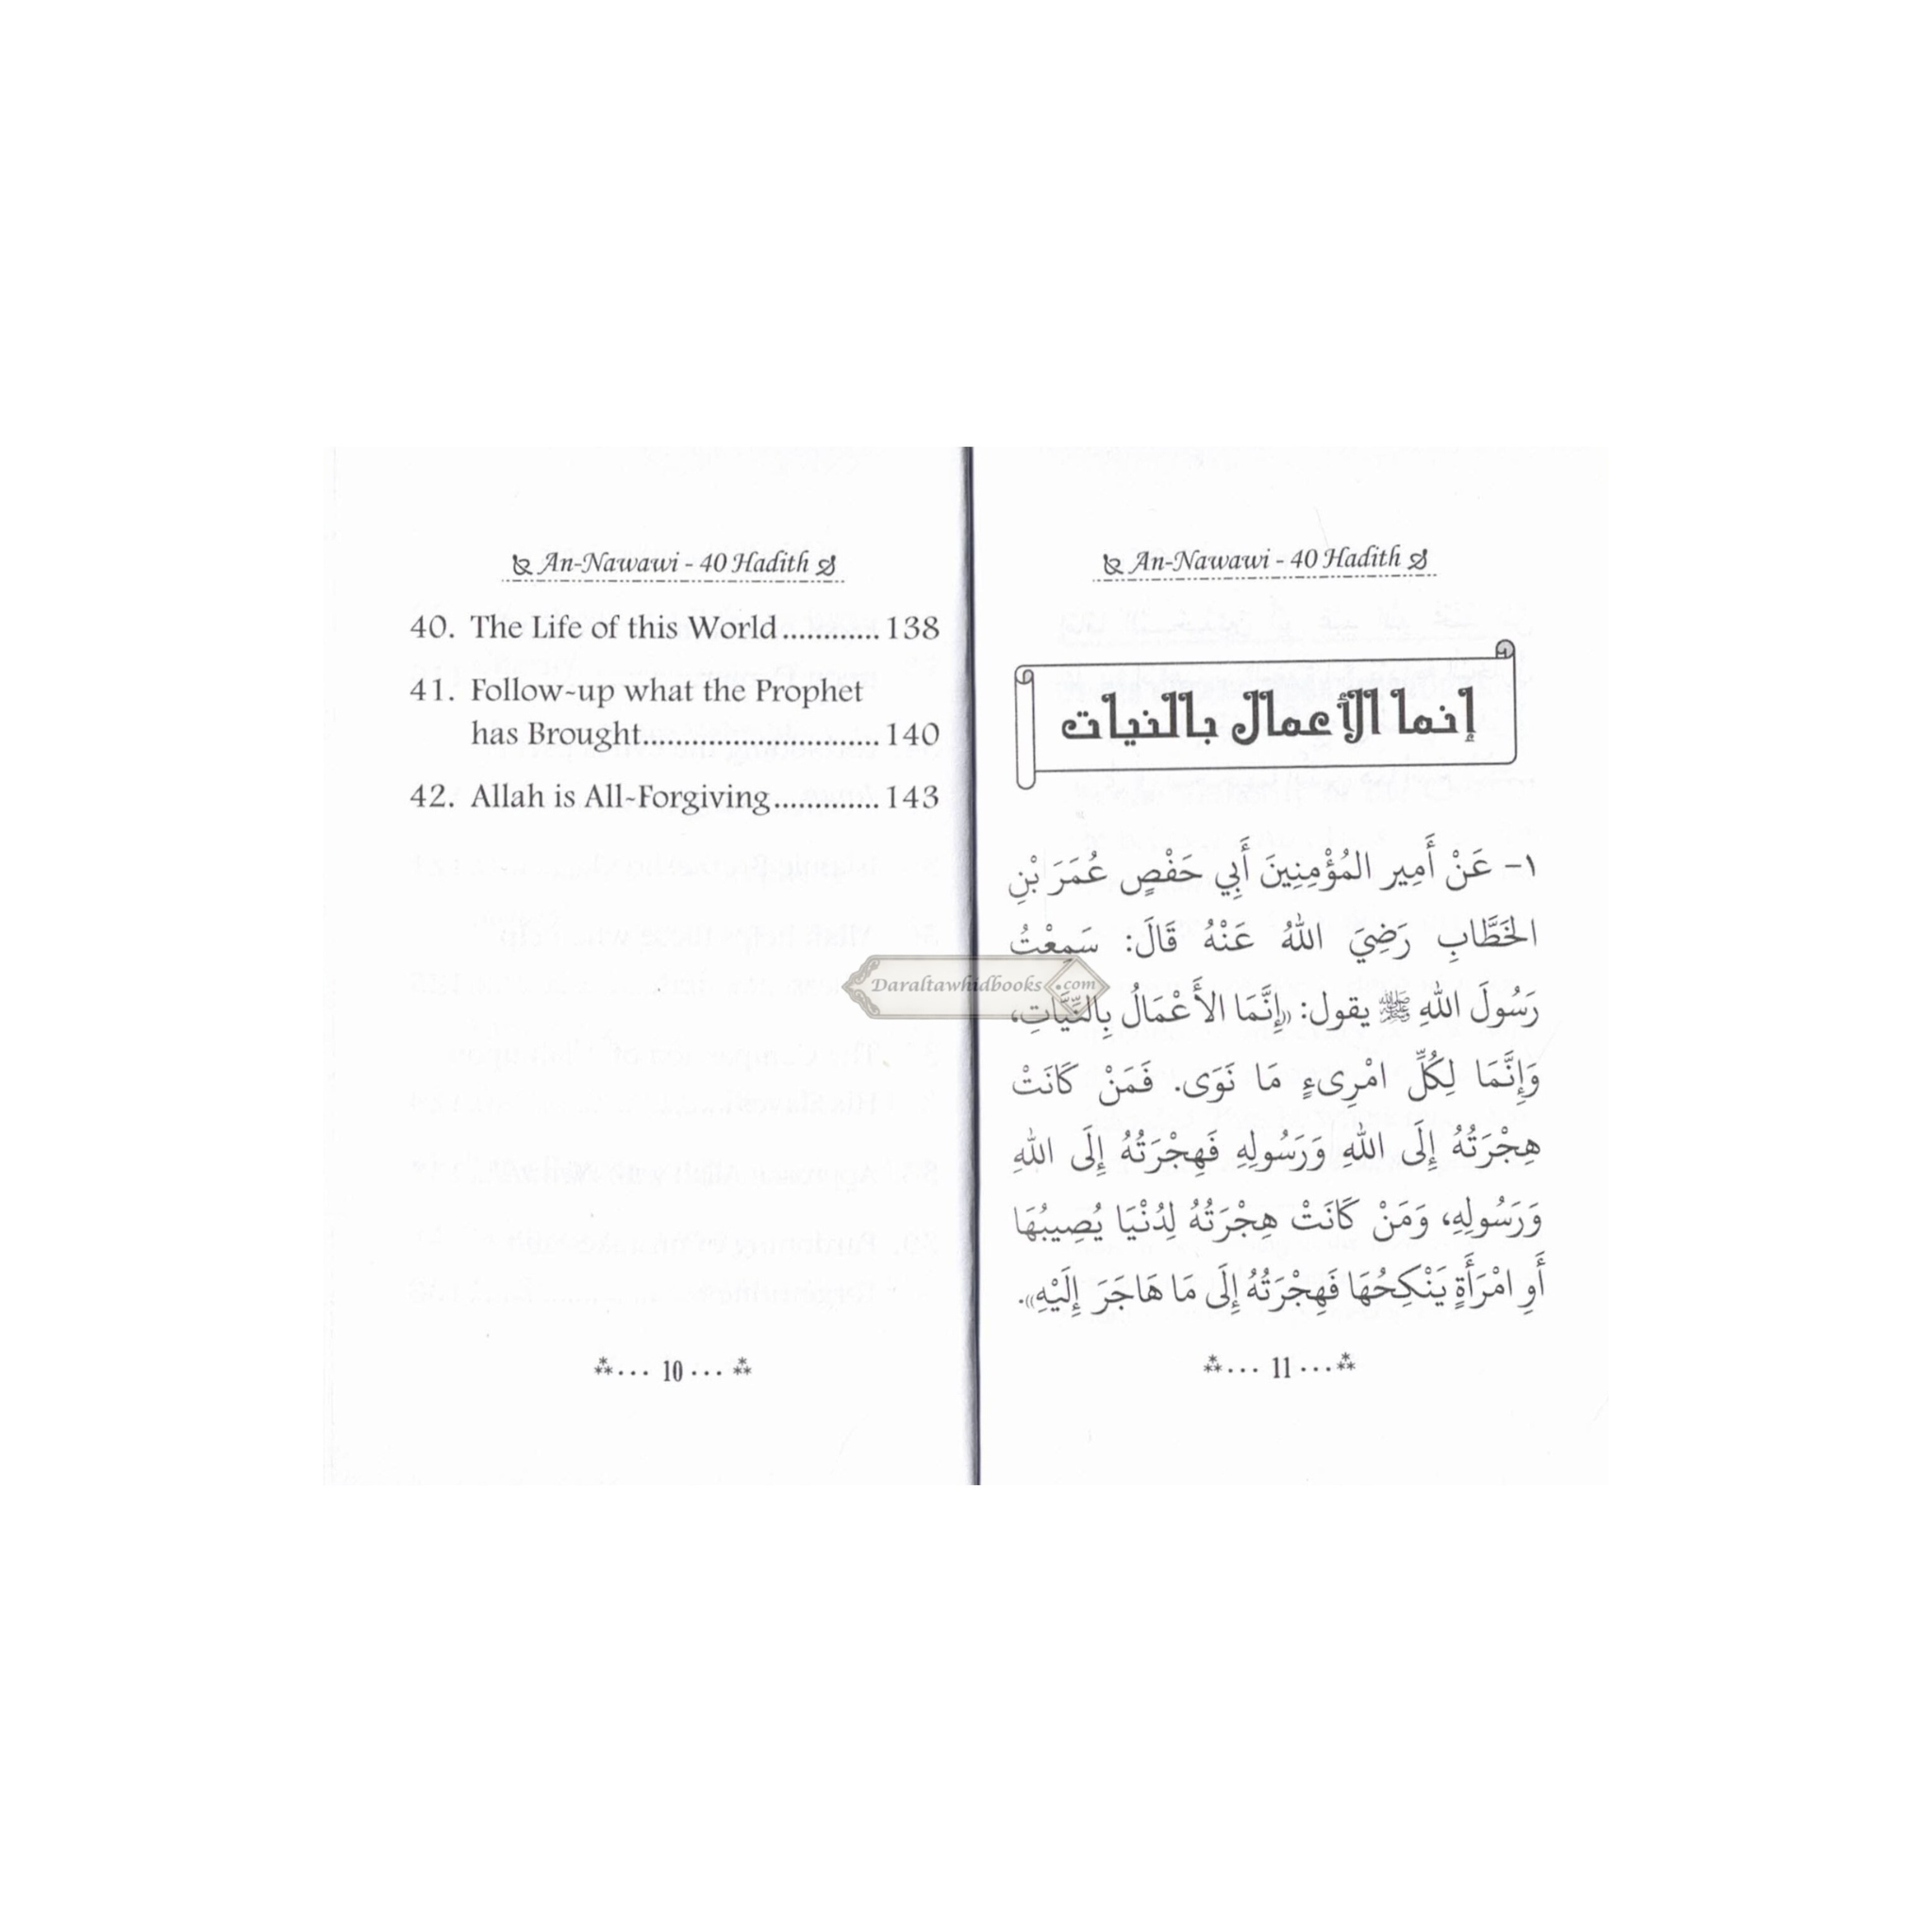 An-Nawawi - 40 Hadith
40. The Life of this World............138
41. Follow-up what the Prophet
has Brought............................140
42. Allah is All-Forgiving.............143
10
An-Nawawi - 40 Hadith
إنما الأعمال بالنيات
١- عَنْ أَمِيرِ المُؤْمِنِينَ أَبِي حَفْصٍ عُمَرَ بْنِ
الخَطَّابِ رَضِيَ اللهُ عَنْهُ قَالَ: سَمِعْتُ
رَسُولَ اللهِ ﷺ يقول: «إِنَّمَا الأَعْمَالُ بِالنِّيَّاتِ،
وَإِنَّمَا لِكُلِّ امْرِىءٍ مَا نَوَى. فَمَنْ كَانَتْ
هِجْرَتُهُ إِلَى اللهِ وَرَسُولِهِ فَهِجْرَتُهُ إِلَى اللهِ
وَرَسُولِهِ، وَمَنْ كَانَتْ هِجْرَتُهُ لِدُنْيَا يُصِيبُهَا
أَوِ امْرَأَةٍ يَنْكِحُهَا فَهِجْرَتُهُ إِلَى مَا هَاجَرَ إِلَيْهِ».
11
Daraltawhidbooks.com